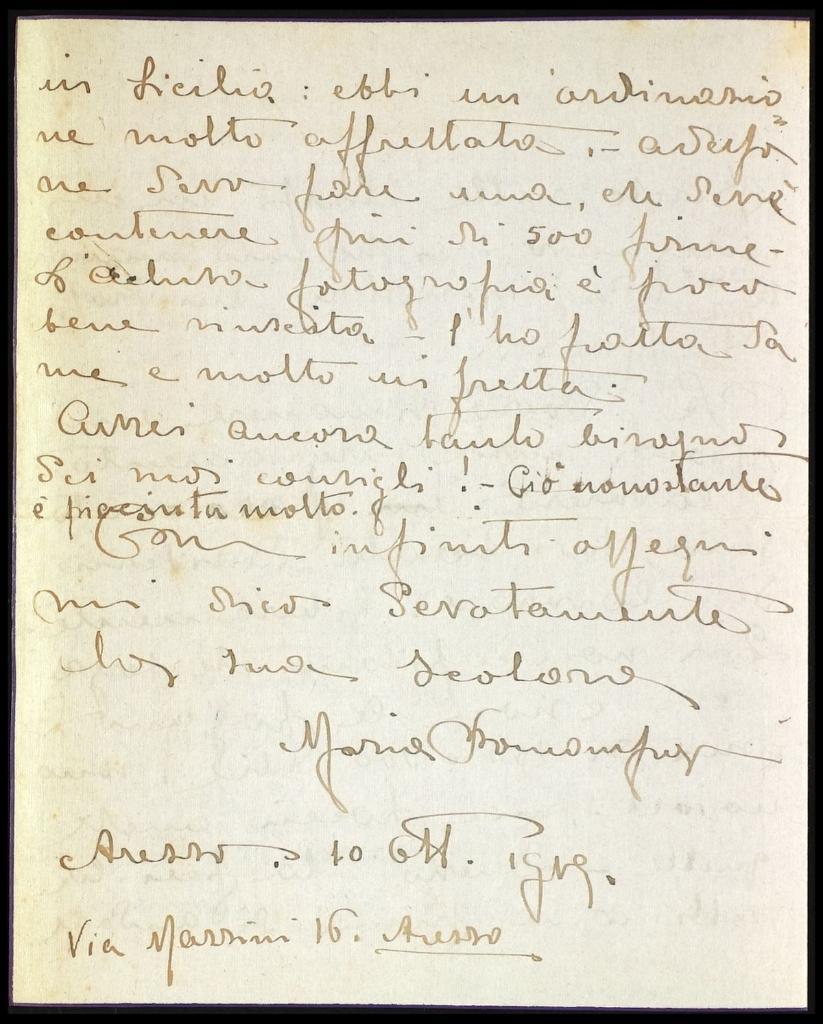 in Sicilia: ebbi un'ordinazio=
ne molto affrettata. - adesso
ne devo fare una, che deve
contenere più di 500 firme -
L'acclusa fotografia è poco
bene riuscita - l'ho fatta da
me e molto in fretta.
Avrei ancora tanto bisogno
dei suoi consigli! - Ciò nonostante
è piaciuta molto.
Con infiniti ossequi
mi dico devotamente
la sua scolara
Maria
Arezzo. 10 Ott. 1919.
Via Mazzini 16. Arezzo